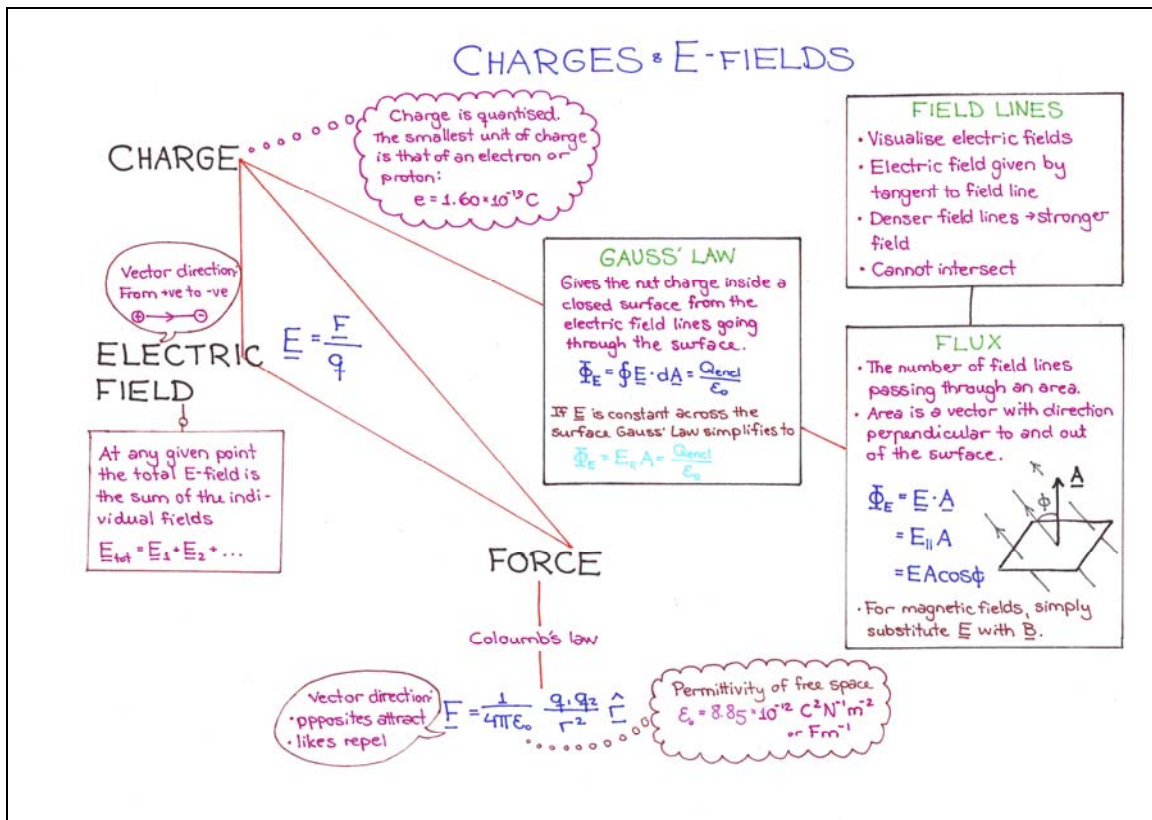 CHARGES & E-FIELDS
CHARGE
Charge is quantised.
The smallest unit of charge
is that of an electron or
proton:
e = 1.60 × 10⁻¹⁹ C
Vector direction:
From +ve to -ve
⊕ → ⊖
ELECTRIC
FIELD
E = F / q
At any given point
the total E-field is
the sum of the indi-
vidual fields
E_tot = E₁ + E₂ + ...
GAUSS' LAW
Gives the net charge inside a
closed surface from the
electric field lines going
through the surface.
Φ_E = ∮ E · dA = Q_encl / ε₀
If E is constant across the
surface Gauss' Law simplifies to
Φ_E = E_|| A = Q_encl / ε₀
FIELD LINES
· Visualise electric fields
· Electric field given by
tangent to field line
· Denser field lines → stronger
field
· Cannot intersect
FLUX
· The number of field lines
passing through an area.
· Area is a vector with direction
perpendicular to and out
of the surface.
Φ_E = E · A
= E_|| A
= EA cos ϕ
ϕ
A
· For magnetic fields, simply
substitute E with B.
FORCE
Coloumb's law
Vector direction:
· ppposites attract
· likes repel
F = 1 / 4πε₀ q₁q₂ / r² r̂
Permittivity of free space
ε₀ = 8.85 × 10⁻¹² C² N⁻¹ m⁻²
or Fm⁻¹